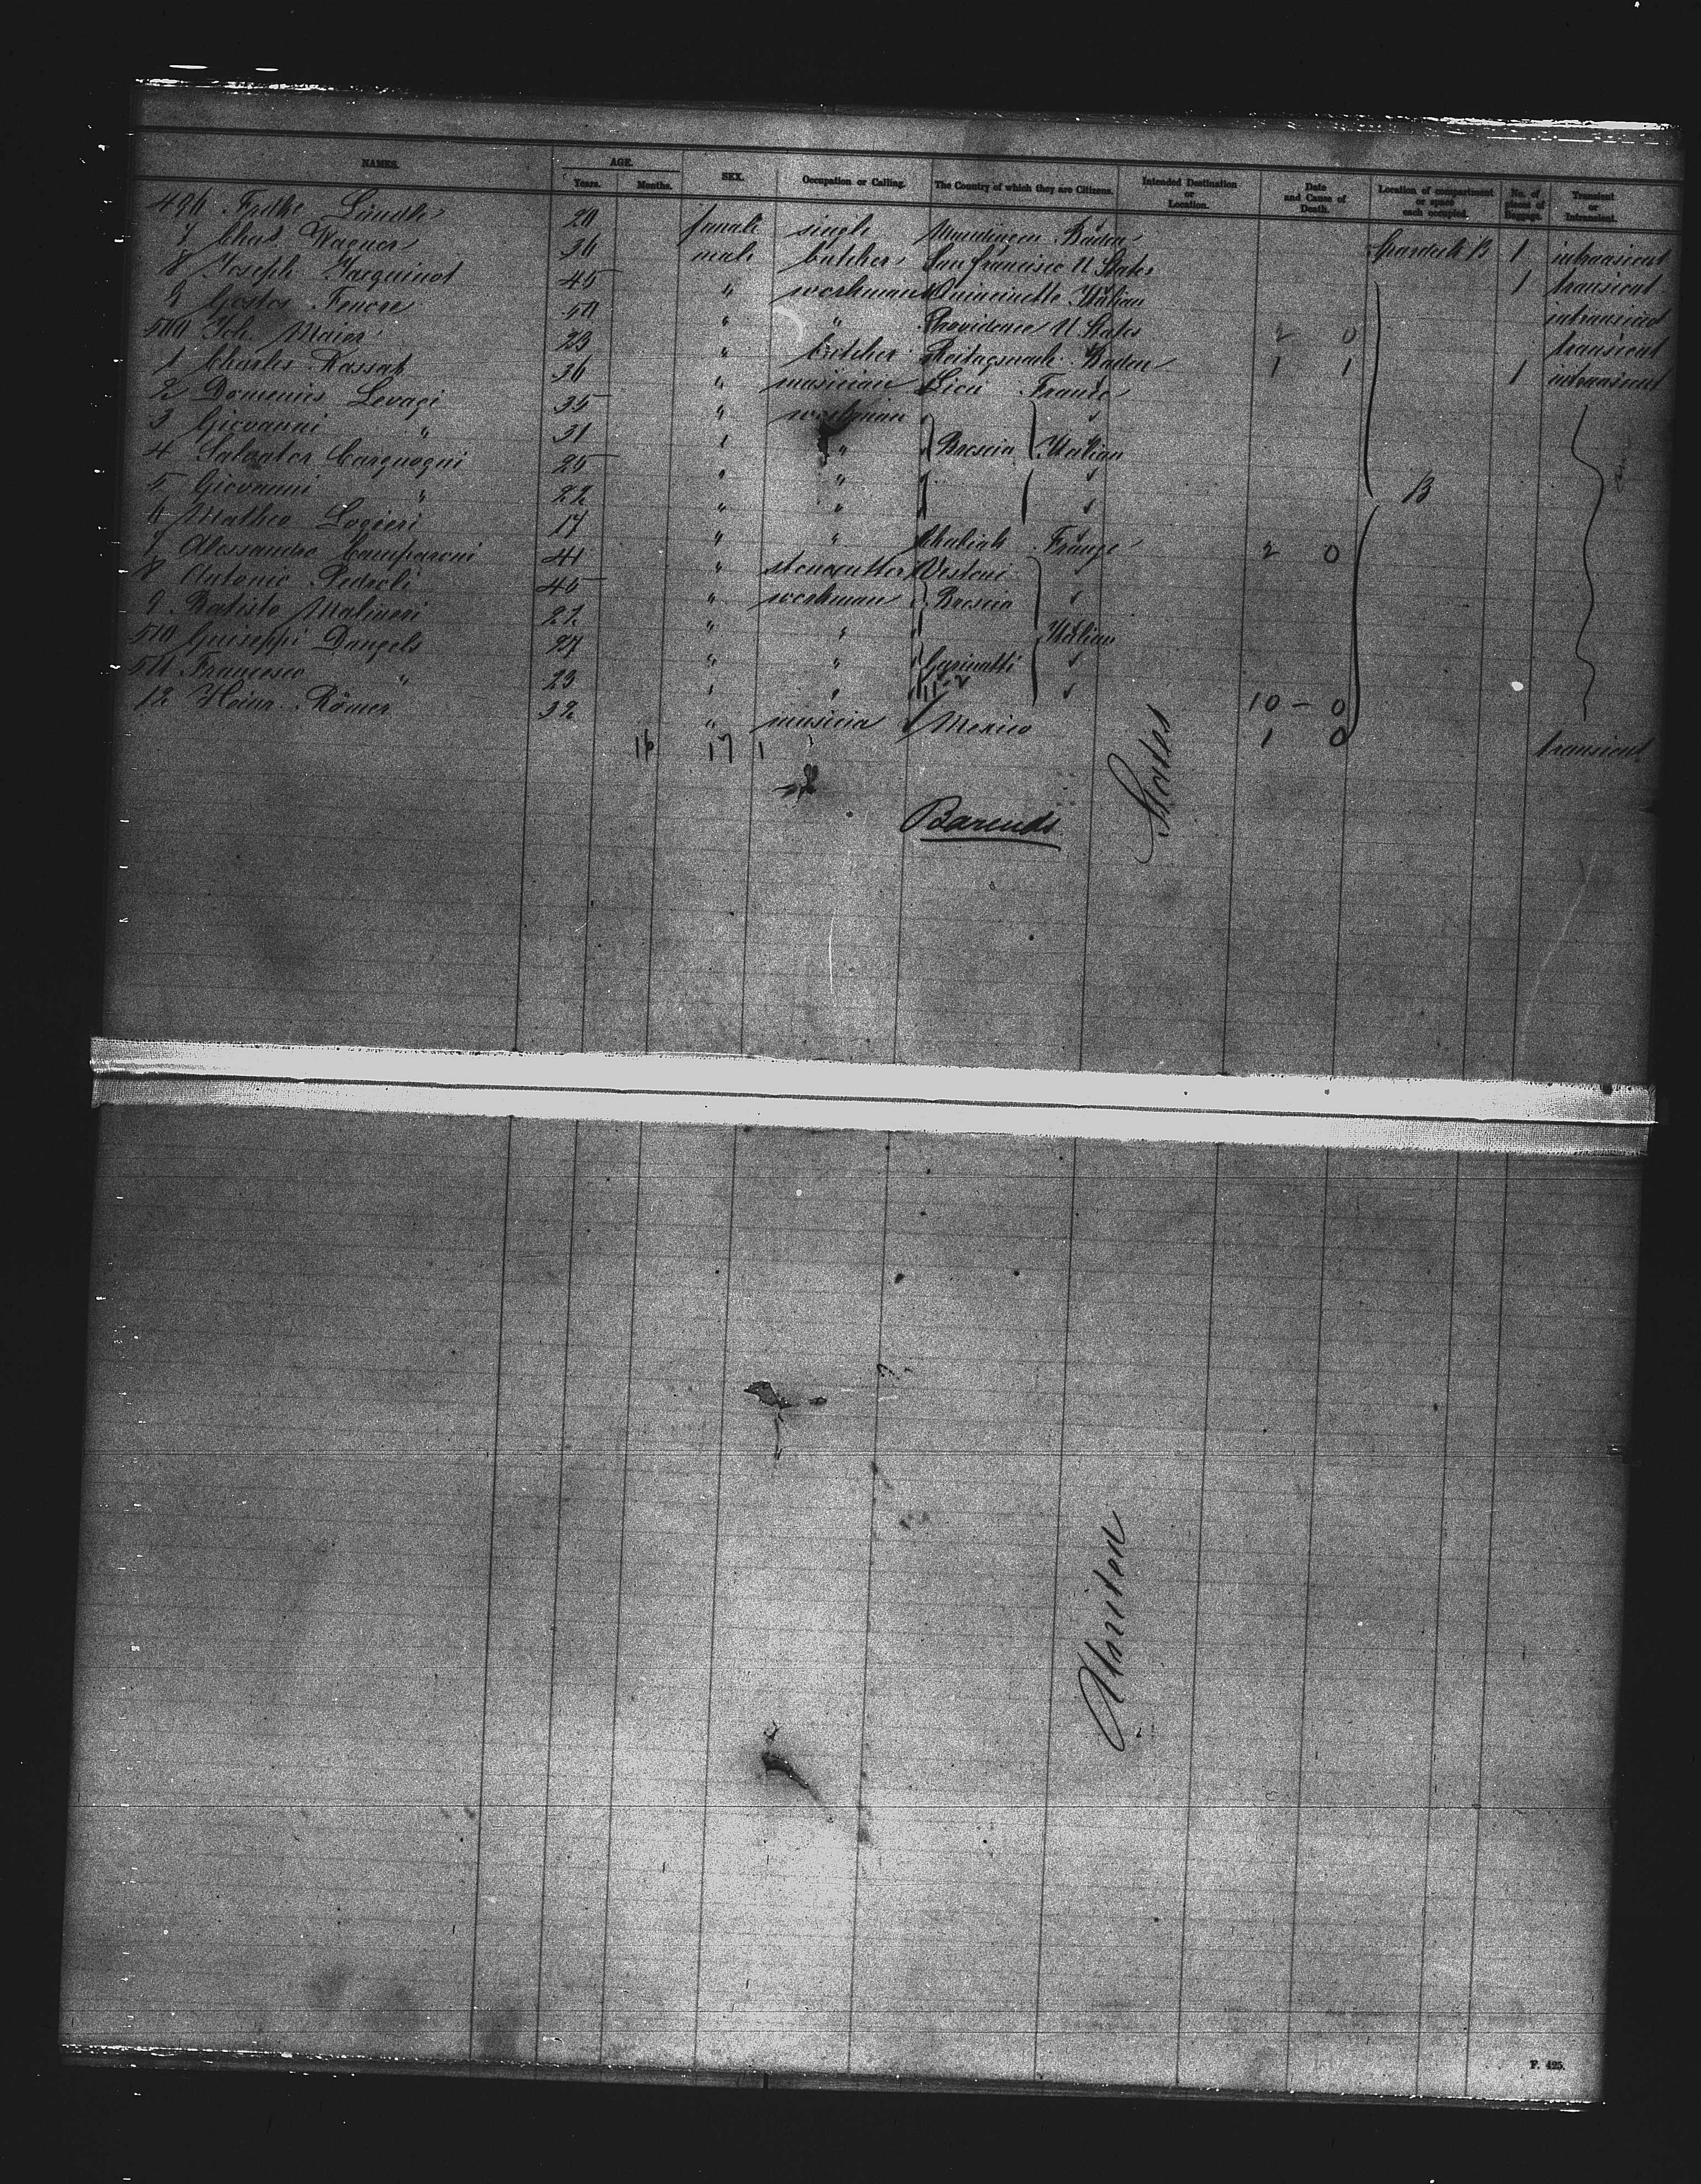 NAMES. AGE. SEX. Occupation or Calling. The Country of which they are Citizens. Intended Destination or Location. Date and Cause of Death. Location of compartment or space each occupied. No. of pieces of Baggage. Transient or Intransient.
Years. Months.
496 Fredke Lindle 20 female single Baden B 1 intransient
7 Chas. Wagner 36 male butcher San Francisco U States 1 transient
8 Joseph Jacquinot 45 " workman Italian intransient
9 50 " " Providence U States 2 0 transient
500 Joh. Maier 23 " butcher Baden 1 1 1 intransient
1 Charles Kassab 36 " musician France
2 Domenico Levagi 35 " workman
3 Giovanni " 31 " " Brescia Italian
4 Salvator Carguogni 25 " "
5 Giovanni " 22 " " B
6 Matheo Logieri 17 " " France 2 0
7 Alessandro Camparoni 41 " stonecutter Vestoni
8 Antonio Pedroli 45 " workman Brescia
9 Batisto Malineri 27 " " Italian
510 Guiseppi Dangels 27 " "
511 Francesco " 23 " " 10 – 0
12 Heinr. Römer 32 " musicia Mexico 1 0 transient
16 17 1
Barends
States
United
F. 425.